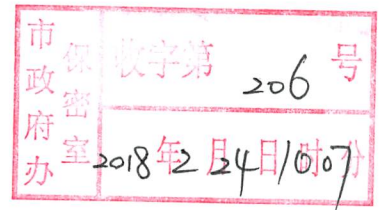 市政府办
保密室
收字第 206 号
2018年2月24日10时07分